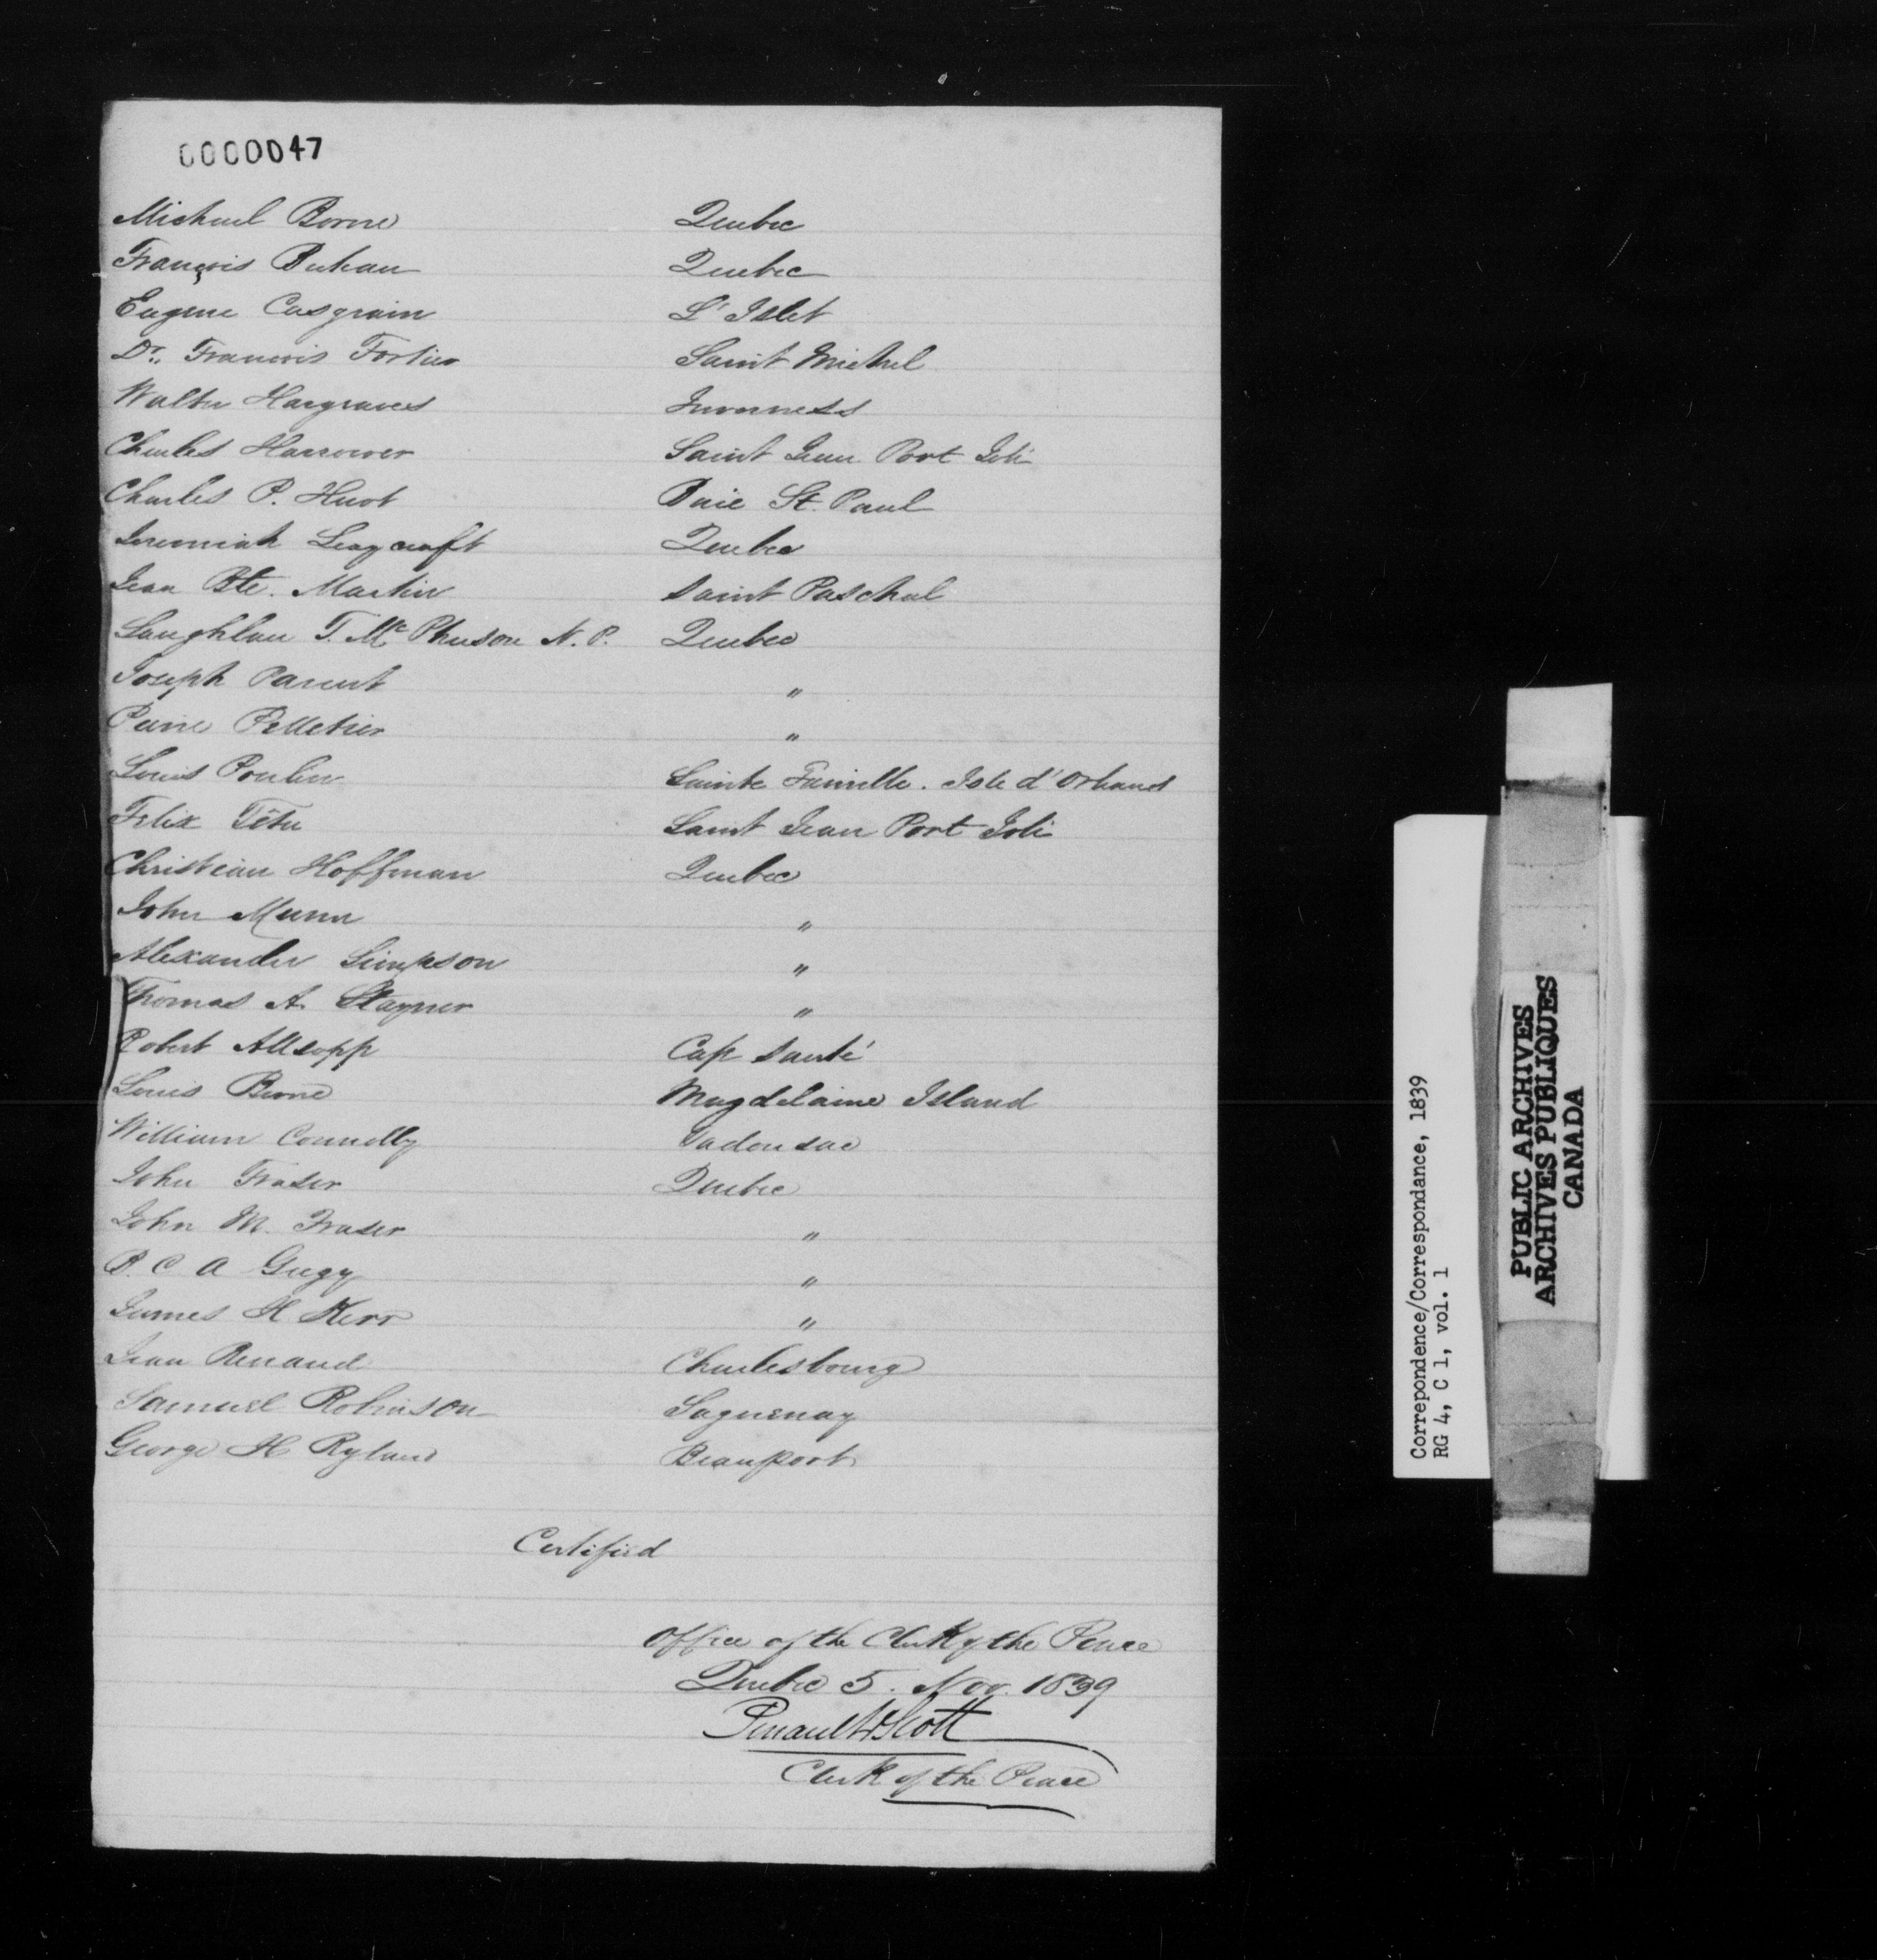 0000047
Michael Borne Quebec
François Buteau Quebec
Eugene Casgrain L'Islet
Dr. Francois Fortier Saint Michel
Walter Hargraves Inverness
Charles Harrower Saint Jean Port Joli
Charles P. Huot Baie St. Paul
Jeremiah Leaycraft Quebec
Jean Bte. Martin Saint Paschal
Laughlan T. McPherson N. P. Quebec
Joseph Parent "
Pierre Pelletier "
Louis Poulin Sainte Famille. Isle d'Orleans
Felix Têtu Saint Jean Port Joli
Christian Hoffman Quebec
John Munn "
Alexander Simpson "
Thomas A. Stayner "
Robert Allsopp Cap Santé
Louis Borne Magdelaine Island
William Connolly Tadousac
John Fraser Quebec
John M. Fraser "
B. C A Gugy "
James H Kerr "
Jean Renaud Charlesbourg
Samuel Robinson Saguenay
George H Ryland Beauport
Certified
Office of the Clerk of the Peace
Quebec 5. Nov. 1839
Perrault & Scott
Clerk of the Peace
Correpondence/Correspondance, 1839
RG 4, C 1, vol. 1
PUBLIC ARCHIVES
ARCHIVES PUBLIQUES
CANADA